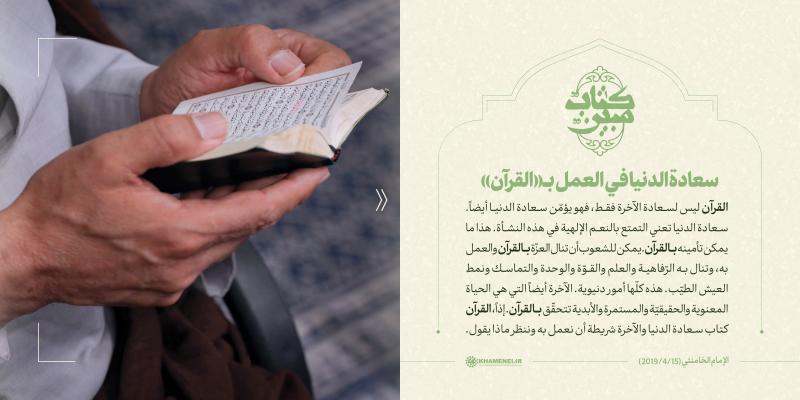 كتاب مبين
سعادة الدنيا في العمل بـ«القرآن»
القرآن ليس لسعادة الآخرة فقط، فهو يؤمّن سعادة الدنيا أيضاً.
سعادة الدنيا تعني التمتع بالنعم الإلهية في هذه النشأة. هذا ما
يمكن تأمينه بـالقرآن. يمكن للشعوب أن تنال العزّة بـالقرآن والعمل
به، وتنال به الرّفاهية والعلم والقوّة والوحدة والتماسك ونمط
العيش الطيّب. هذه كلّها أمور دنيوية. الآخرة أيضاً التي هي الحياة
المعنوية والحقيقيّة والمستمرة والأبدية تتحقّق بـالقرآن. إذاً، القرآن
كتاب سعادة الدنيا والآخرة شريطة أن نعمل به وننظر ماذا يقول.
الإمام الخامنئي (2019/4/15)
KHAMENEI.IR